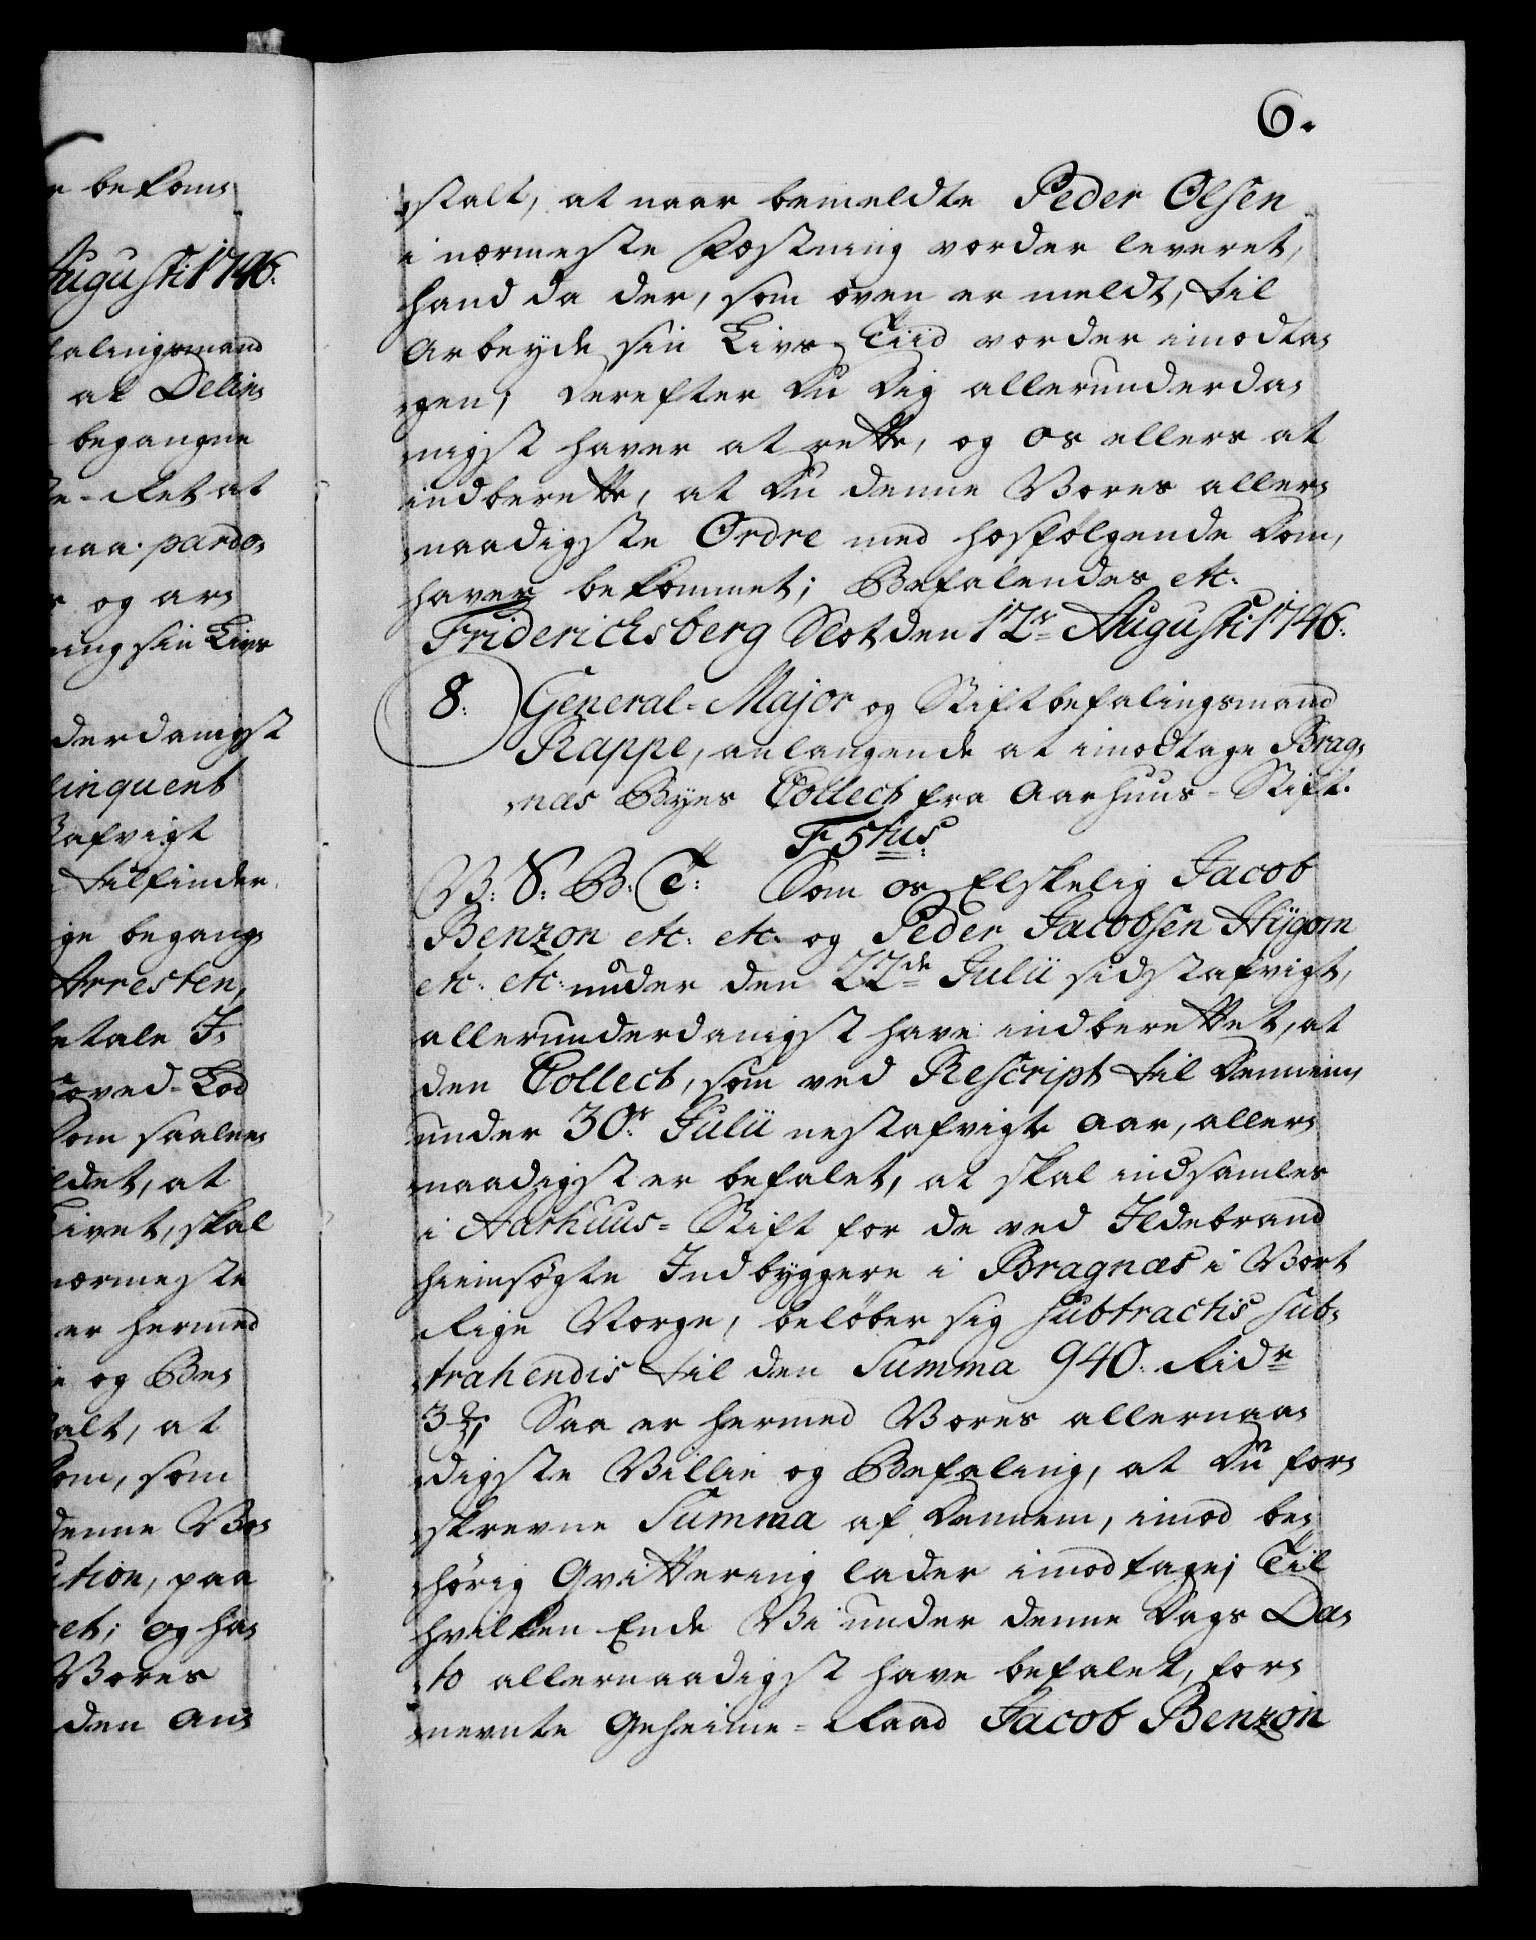 e bekom-
Augusti 1746.
falingsmand
at Delin-
begangne
te-Ret at
maa pardo-
og ar-
ning sin Livs
derdanigst
linquent
tilfinder
ge begang-
Arresten,
betale J-
Hoved-Lod
som saale-
ldet, at
Livet, skal
nærmeste
er hermed
og Be-
talt, at
om, som
denne Vo-
ution, paa
et; og ha-
Vores
den An-
6.
stalt, at naar bemeldte Peder Olsen
i nærmeste Fæstning vorder leveret,
hand da der, som oven er meldt, til
Arbeyde sin Livs-Tiid vorder imodta-
gen; Derefter Du Dig allerunderda-
nigst haver at rette, og os ellers at
indberette, at Du denne Vores aller-
naadigste Ordre med hosfølgende Dom,
haver bekommet; Befalendes etc.
Friderichsberg Slot den 12te Augusti 1746.
8. General-Major og Stiftbefalingsmand
Rappe, anlangende at imodtage Brag-
næs Byes Collect fra Aarhuus-Stift.
F 5tus
V: S: B: T: Som os Elskelig Jacob
Benzon etc. etc. og Peder Jacobsen Hÿgom
etc. etc. under den 22de Julii sidstafvigt,
allerunderdanigst have indberettet, at
den Collect, som ved Rescript til Dennem,
under 30te Julii nestafvigte Aar, aller-
naadigst er befalet, at skal indsamles
i Aarhuus-Stift for de ved Ildebrand
hiemsøgte Indbyggere i Bragnæs i Vort
Rige Norge, beløber sig subtractis sub-
trahendis til den Summa 940. Rdr
3 ß; Saa er hermed Vores allernaa-
digste Villie og Befaling, at Du for-
skrevne Summa af Dennem, imod be-
hørig Qvittering lader imodtage; Til
hvilken Ende Vi under denne Dags Da-
to allernaadigst have befalet, for-
nevnte Geheime-Raad Jacob Benzon